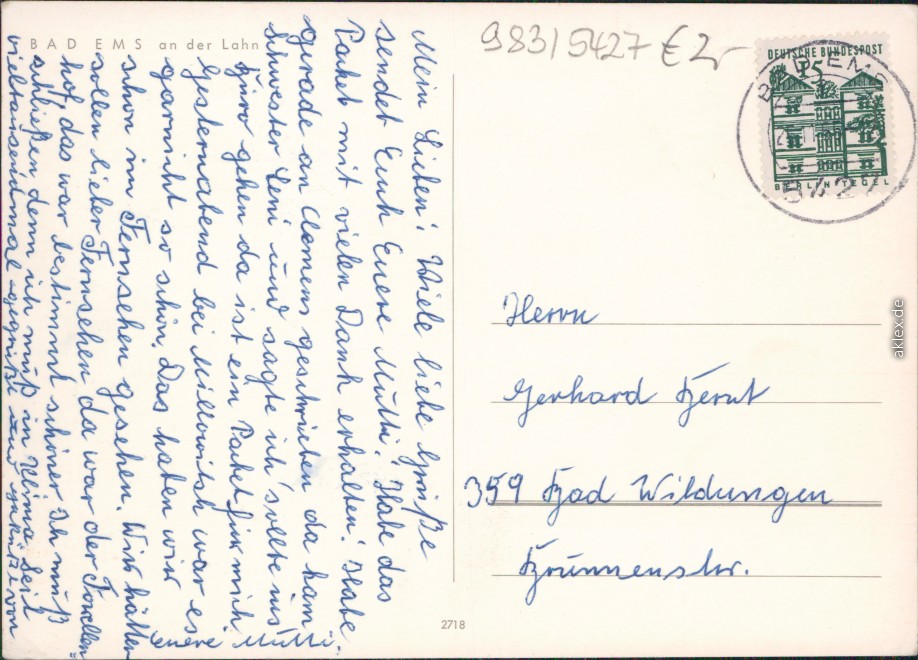 BAD EMS an der Lahn
Mein Lieben! Viele liebe Grüße
sendet Euch Euere Mutti! Habe das
Paket mit vielen Dank erhalten! Habe
gerade an Clemens geschrieben da kam
Schwester Leni und sagte ich sollte ins
Büro gehen da ist ein Paket für mich
Gesternabend bei Millowitsch war es
garnicht so schön. Das haben wir
schon im Fernsehen gesehen. Wir hätten
sollen lieber Fernsehen da war der Forellen=
hof, das war bestimmt schöner. Ich muß
schließen denn ich muß in Klima Seit
vieltausendmal gegrüßt und geküßt von
Euere Mutti.
9831 5427 € 2,-
DEUTSCHE BUNDESPOST
15
BERLIN TEGEL
BAD EMS
5427
Herrn
Gerhard
359 Bad Wildungen
Brunnenstr.
2718
aklex.de